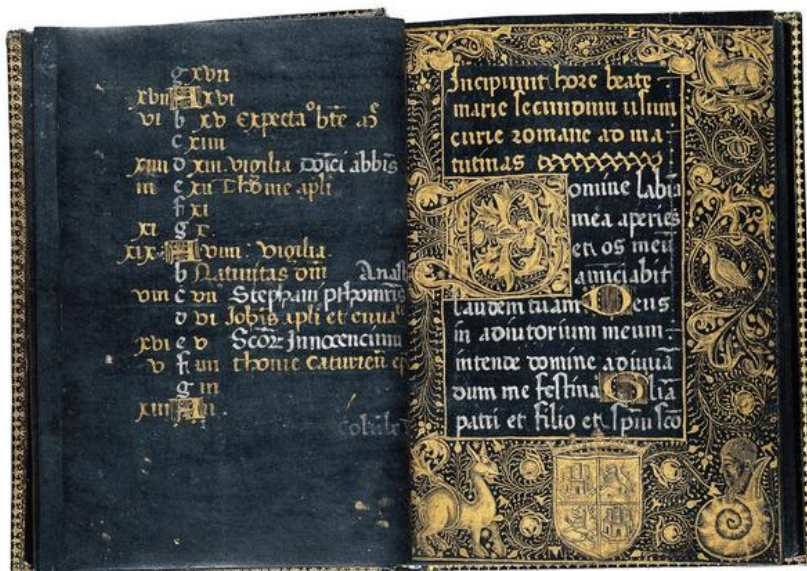 g xvii
xvii A xvi
vi b xv Expectaº bte
c xiiii
xiiii d xiii vigilia abbis
iii e xii Thome apli
f xi
xi g x
xix A viiii vigilia
b Nativitas dni Anast
viii c vii Stephani
d vi Johis apli et
xvi e v Innocencium
v f iiii thome caturien ep
g iii
xiii A ii
Incipiunt hore beate
marie secundum usum
curie romane ad ma
tutinas
Domine labia
mea aperies
et os meū
annūciabit
laudem tuam Deus
in adiutorium meum
intende domine adiuuā
dum me festina Gliā
patri et filio et spiu sco